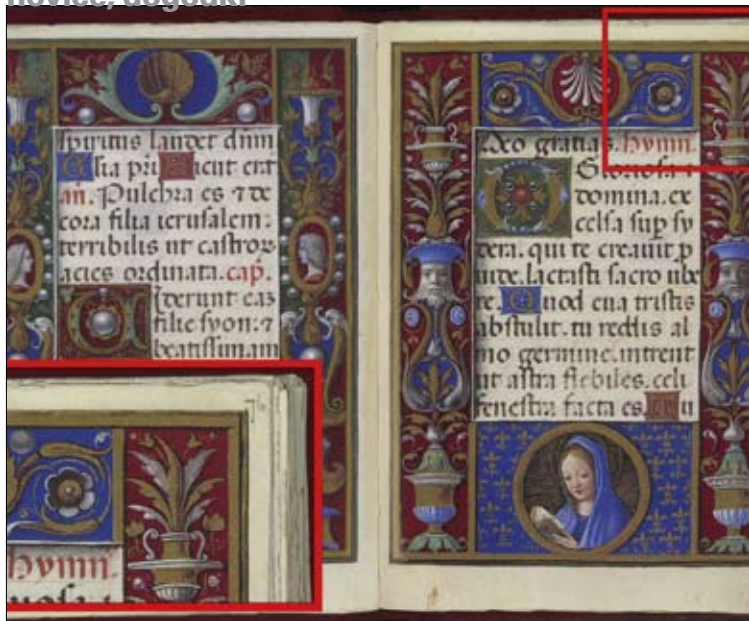 novice, dogodki
spiritus laudet dñm
Glia pri Sicut erat
añ. Pulchra es ⁊ de
cora filia ierusalem:
terribilis ut castroꝝ
acies ordinata. cap̃.
Viderunt eas
filie syon: ⁊
beatissimam
Deo gratias. hymn.
O Gloriosa
domina. ex
celsa sup sy
dera. qui te creauit p
uide. lactasti sacro ube
re. Quod eua tristis
abstulit. tu reddis al
mo germine. intrent
ut astra flebiles. celi
fenestra facta es. Tu
hymn.